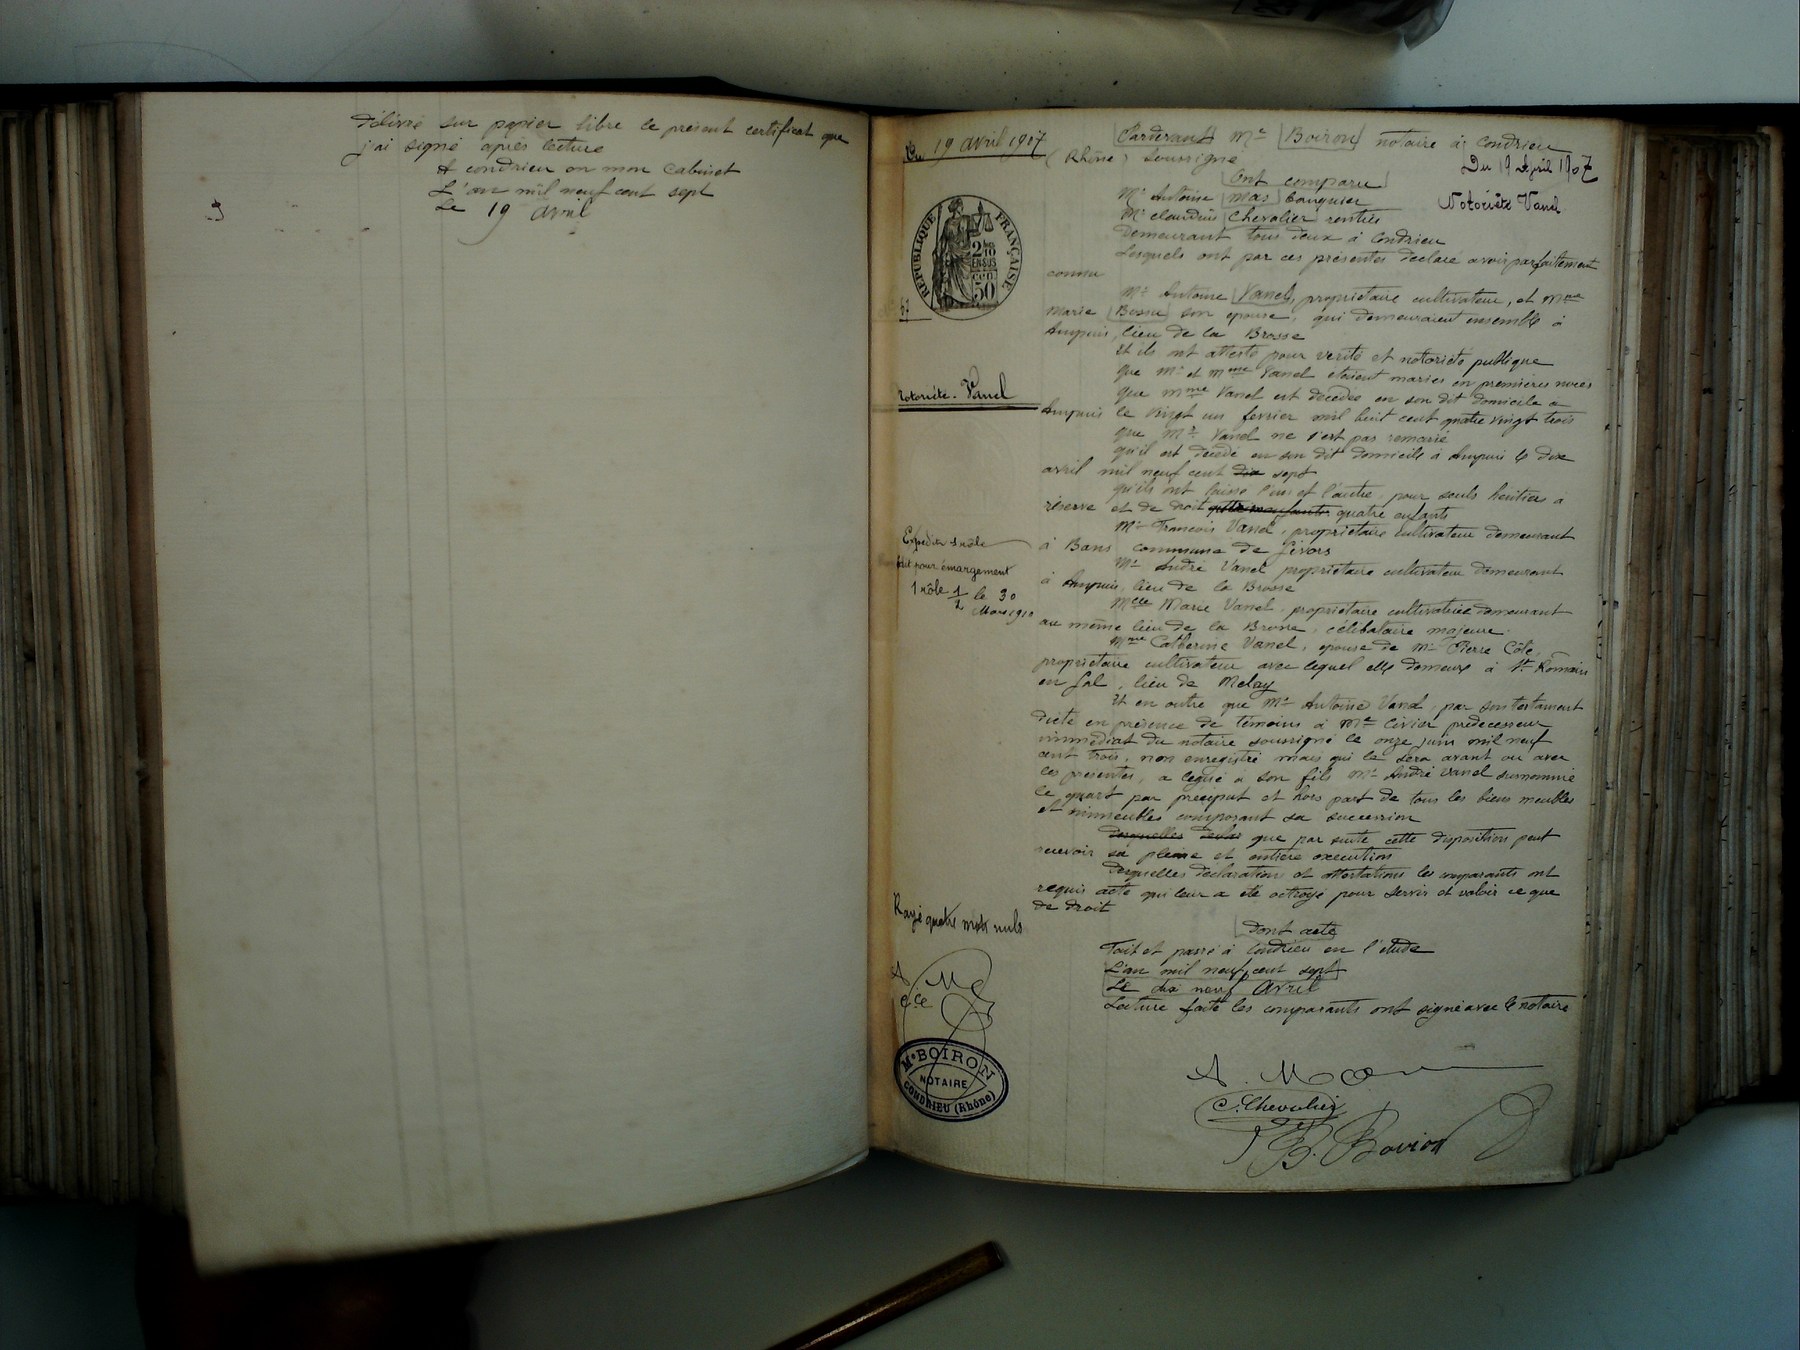 Délivré sur papier libre le présent certificat que
j'ai signé après lecture
A condrieu en mon cabinet
L'an mil neuf cent sept
Le 19 avril
Du 19 avril 1907
RÉPUBLIQUE FRANÇAISE
2/10
EN SUS
50
Notoriété. Vanel
Expédition 1 rôle
fait pour émargement
1 rôle 1/2 le 30
Mars 1910
Rayé quatre mots nuls
A M
C.C
Me BOIRON
NOTAIRE
CONDRIEU (Rhône)
Pardevant Me Boiron notaire à Condrieu
(Rhône) soussigné
Du 19 April 1907
Notoriété Vanel
Ont comparu
Mr Antoine Mas banquier
Mr Claudius Chevalier rentier
Demeurant tous deux à Condrieu
Lesquels ont par ces présentes déclaré avoir parfaitement
connu
Mr Antoine Vanel, propriétaire cultivateur, et Mme
Marie Bossu son épouse, qui demeuraient ensemble à
Ampuis, lieu de la Brosse
Et ils ont attesté pour vérité et notoriété publique
que Mr et Mme Vanel étaient mariés en premières noces
que Mme Vanel est décédée en son dit domicile à
Ampuis le vingt un février mil huit cent quatre vingt trois
que Mr Vanel ne s'est pas remarié
qu'il est décédé en son dit domicile à Ampuis le dix
avril mil neuf cent dix sept
qu'ils ont laissé l'un et l'autre, pour seuls héritiers à
réserve et de droit quatre enfants
Mr François Vanel, propriétaire cultivateur demeurant
à Bans commune de Givors
Mr André Vanel propriétaire cultivateur demeurant
à Ampuis, lieu de la Brosse
Melle Marie Vanel, propriétaire cultivatrice demeurant
au même lieu de la Brosse, célibataire majeure.
Mme Catherine Vanel, épouse de Mr Pierre Côte,
propriétaire cultivateur avec lequel elle demeure à St Romain
en Gal, lieu de Melay
Et en outre que Mr Antoine Vanel, par son testament
dicté en présence de témoins à Me Civier prédécesseur
immédiat du notaire soussigné le onze juin mil neuf
cent trois, non enregistré mais qui le sera avant ou avec
les présentes, a légué à son fils Mr André Vanel surnommé
le quart par préciput et hors part de tous les biens meubles
et immeubles composant sa succession
Desquelles que par suite cette disposition peut
recevoir sa pleine et entière exécution
Desquelles déclarations et attestations les comparants ont
requis acte qui leur a été octroyé pour servir et valoir ce que
de droit
Dont acte
Fait et passé à Condrieu en l'étude
L'an mil neuf cent sept
Le dix neuf Avril
Lecture faite les comparants ont signé avec le notaire
A. Mas
C. Chevalier
B. Boiron